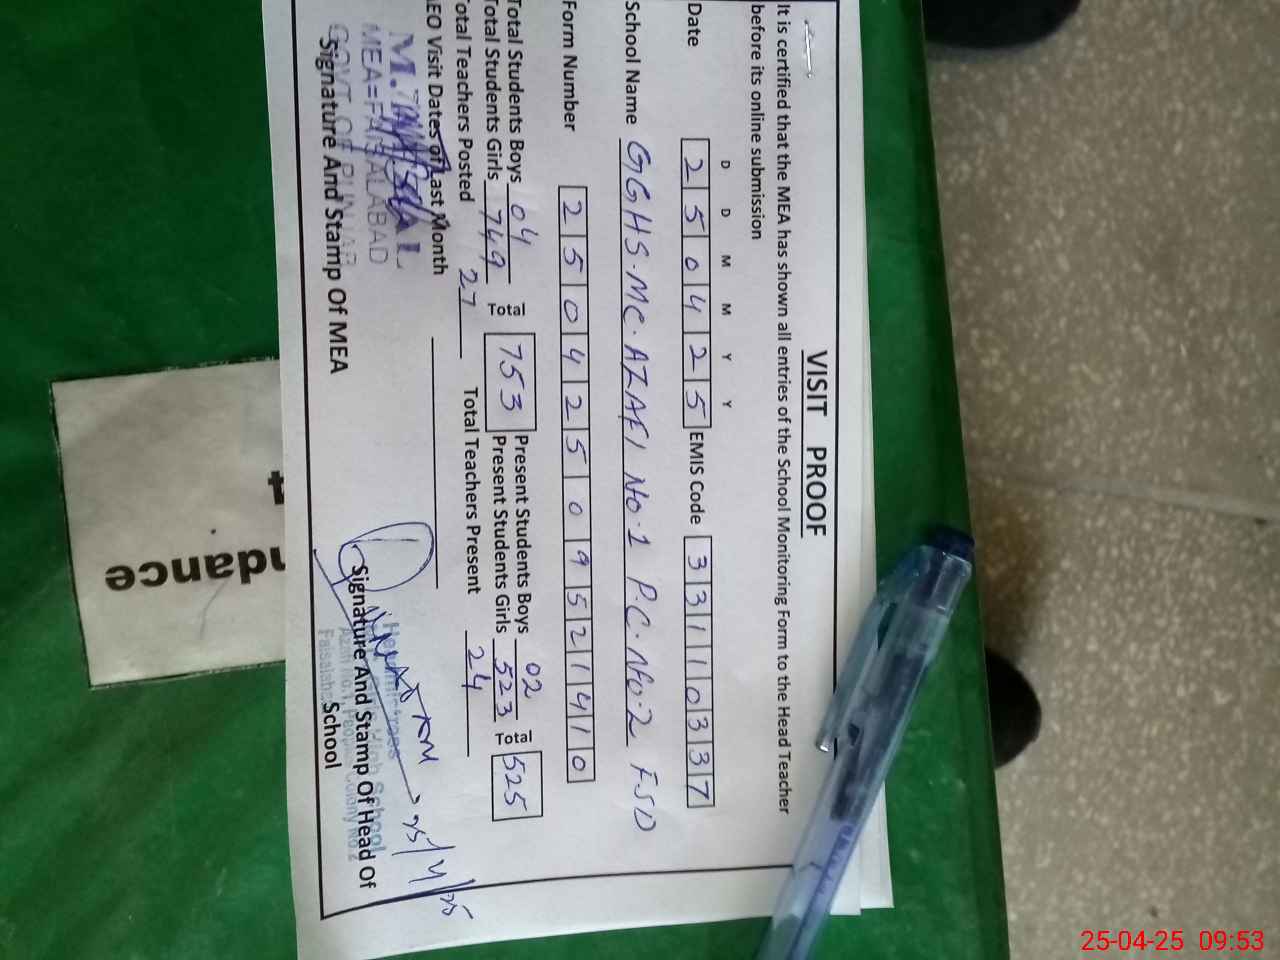 VISIT PROOF
It is certified that the MEA has shown all entries of the School Monitoring Form to the Head Teacher
before its online submission
D D M M Y Y
Date 2 5 0 4 2 5 EMIS Code 3 3 1 1 0 3 3 7
School Name GGHS. MC. AZAFI No.1 P.C. No.2 FSD
Form Number 2 5 0 4 2 5 0 9 5 2 1 4 1 0
Total Students Boys 04 Present Students Boys 02
Total Students Girls 749 Total 753 Present Students Girls 523 Total 525
Total Teachers Posted 27 Total Teachers Present 24
AEO Visit Dates of Last Month
MEA=FAISALABAD
GOVT OF PUNJAB
Signature And Stamp Of MEA
25/4/25
Headmistress
High School
Faisalabad
Signature And Stamp Of Head Of
School
ndance
25-04-25 09:53